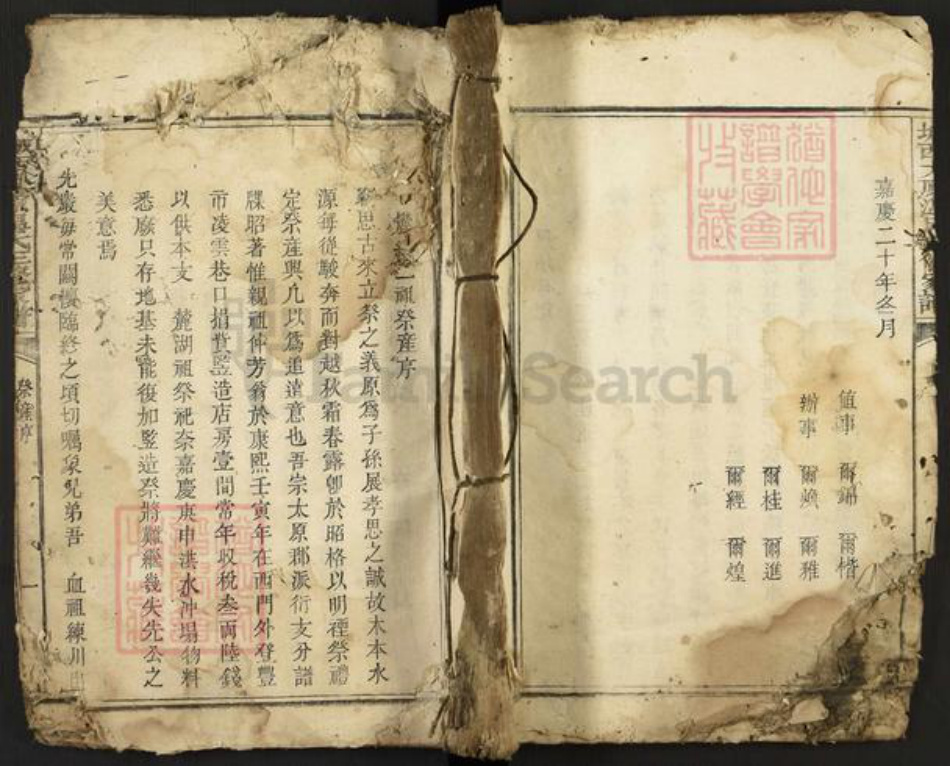 嘉慶二十年冬月
值事 爾錦 爾楷
辦事 爾煥 爾雅
爾桂 爾進
爾經 爾煌
祖祭產序
思古來立祭之義原爲子孫展孝思之誠故木本水
源每從駿奔而對越秋霜春露卽於昭格以明禋祭禮
定祭產興凡以爲追遠意也吾宗太原郡派衍支分譜
牒昭著惟親祖仲芳翁於康熙壬寅年在西門外登豐
市凌雲巷口捐貲竪造店房壹間常年收稅叁両陸錢
以供本支 麓湖祖祭祀奈嘉慶庚申洪水冲塌物料
悉廢只存地基未能復加竪造祭將難繼幾失先公之
美意焉
先嚴每常關懷臨終之頃切囑泉兄弟吾 血祖練川
祭產序
猶他家
譜學會
收藏
FamilySearch